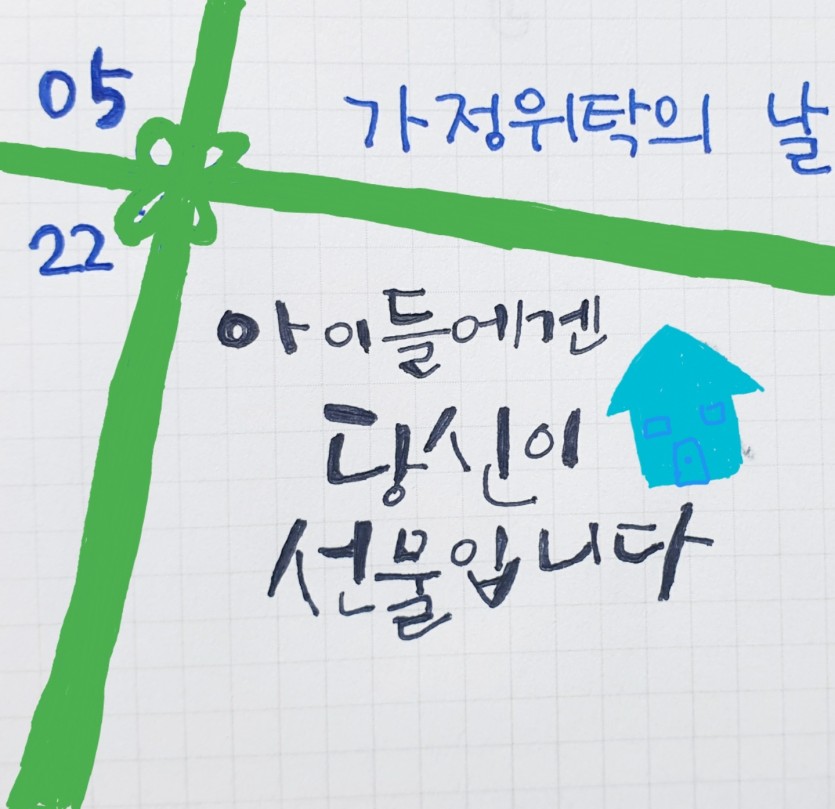 05
가정위탁의 날
22
아이들에겐
당신이
선물입니다